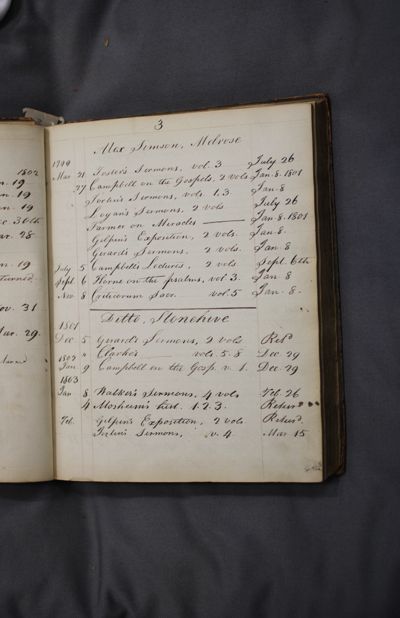 1802
19
19
19
30th
28
19
Returned
Nov. 31
Mar. 29
3
Alex Simson, Melrose
1799
Mar 21 Foster's Sermons, vol. 3 July 26
27 Campbell on the Gospels, 2 vols Jan. 8. 1801
Jortin's Sermons, vols. 1.3. Jan. 8
Logan's Sermons, 2 vols July 26
Farmer on Miracles Jan. 8. 1801
Gilpin's Exposition, 2 vols. Jan. 8.
Gerard's Sermons, 2 vols. Jan. 8
July 5 Campbell's Lectures, 2 vols Sept. 6th
Sept. 6 Horne on the psalms, vol. 3. Jan 8
Nov 8 Criticorum Sacr. vol. 5 Jan. 8.
Ditto, Stonehive
1801
Dec. 5 Gerard's Sermons, 2 vols Retd
1802 " Clarke's vols. 5.8 Dec. 29
Jan. 9 Campbell on the Gosp. v. 1. Dec. 29
1803
Jan 8 Walker's Sermons, 4 vols Feb. 26
4 Mosheim's hist. 1.2.3. Returd
Feb. Gilpin's Exposition, 2 vols Returd
Jortin's Sermons, v. 4. Mar. 15